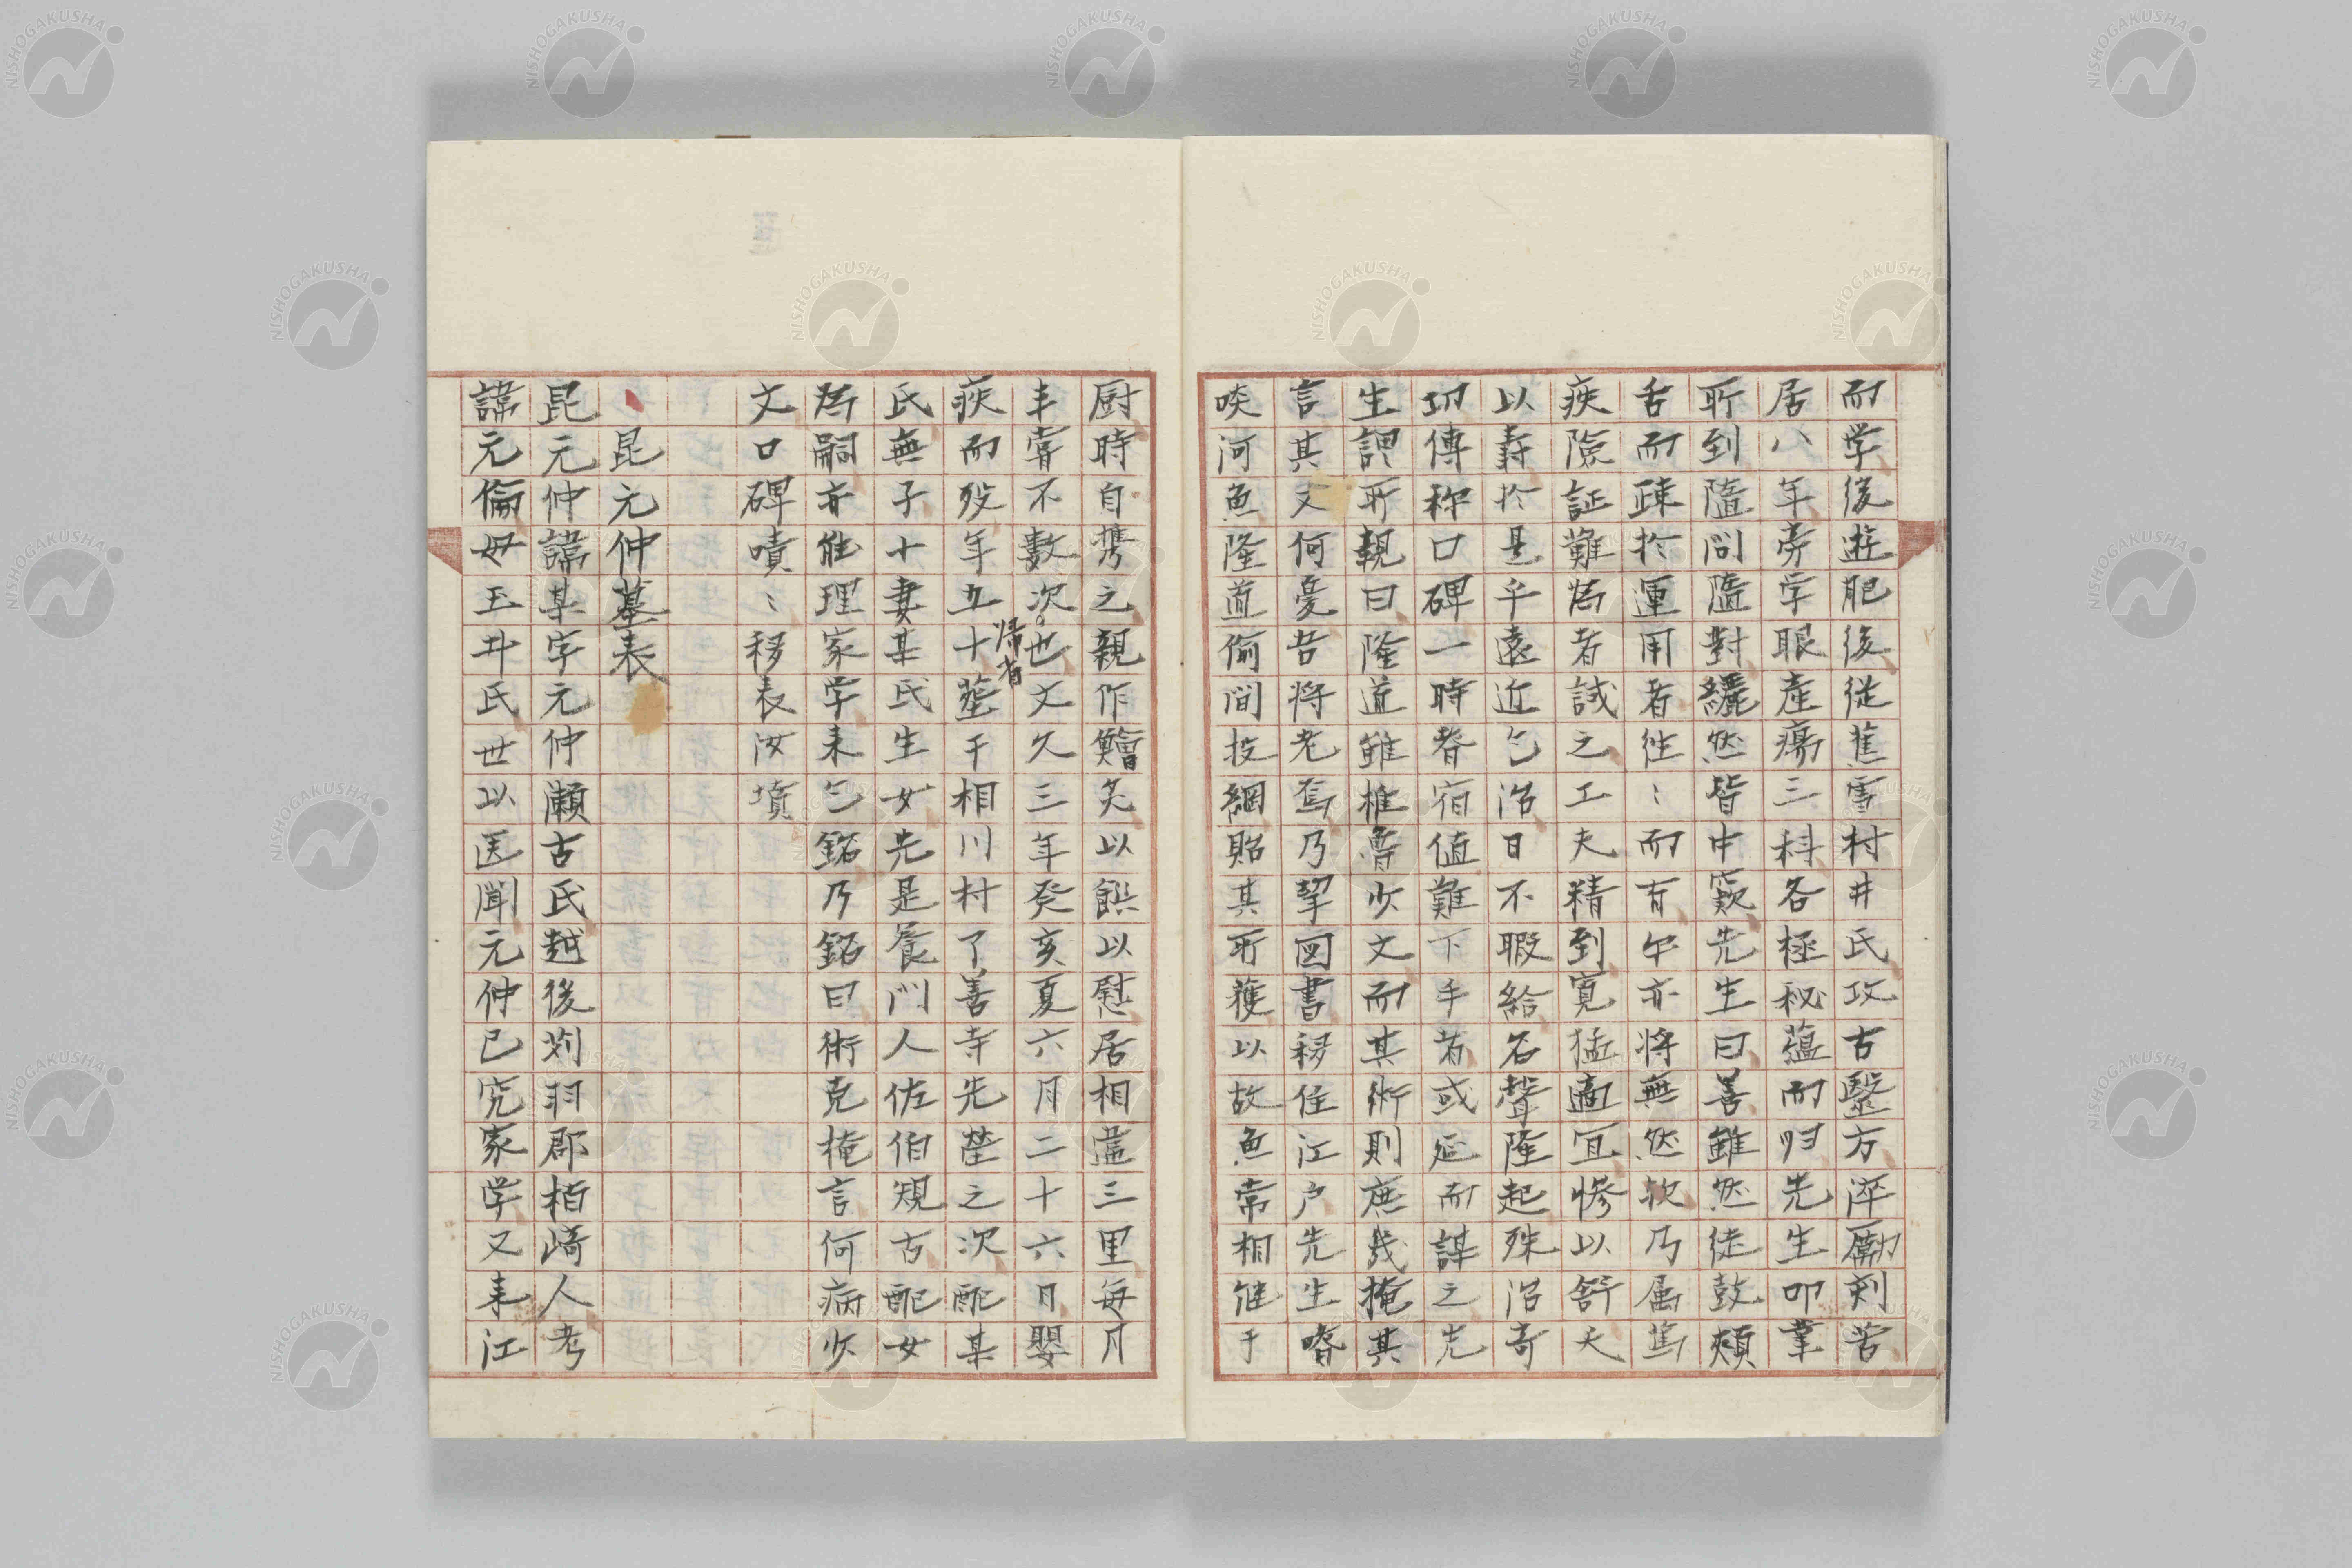 而学後遊肥後従蕉雪村井氏攻古醫方淬勵刻苦
居八年旁学眼産瘍三科各極秘蘊而归先生叩業
所到隨问隨對纚然皆中窾先生曰善雖然徒鼓頰
舌而疎於運用者往〻而有乍亦将無然欤乃属篤
疾險証難為者試之工夫精到寛猛適宜惨以舒夭
以壽於是乎遠近乞治日不暇給名聲隆起殊治奇
功傳称口碑一時眷宿値難下手者或延而謀之先
生謂所親曰隆道雖椎魯少文而其術則庶幾掩其
言其又何憂吾将老焉乃挈図書移住江户先生嗜
啖河魚隆道偷间投網貽其所獲以故魚常相継于
厨時自携之親作鱠炙以饌以慰居相距三里每月
丰嘗不數次帰者也文久三年癸亥夏六月二十六日嬰
疾而歿年五十塟于相川村了善寺先塋之次配某
氏無子十妻某氏生女先是養门人佐伯規古配女
為嗣亦能理家学来乞銘乃銘曰術克掩言何病少
文口碑嘖〻移表汝墳
昆元仲墓表
昆元仲諱某字元仲瀬古氏越後苅羽郡柏崎人考
諱元倫母玉井氏世以医聞元仲已究家学又来江
NISHOGAKUSHA